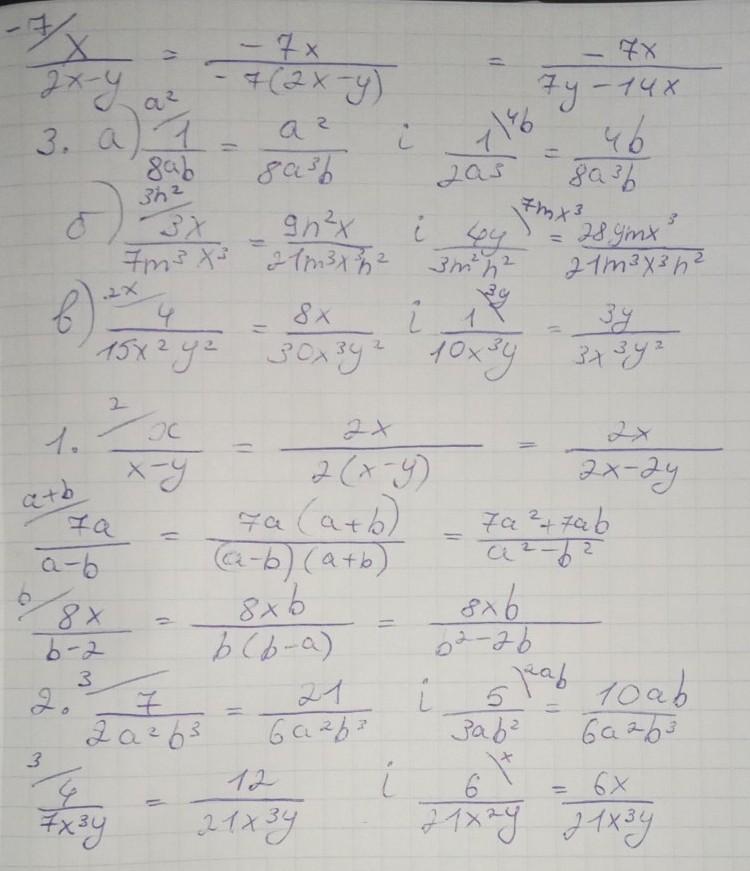 -7/ x/(2x-y) = -7x/(-7(2x-y)) = -7x/(7y-14x)
3. а) a²/ 1/(8ab) = a²/(8a³b) і 1/(2a³) \4b = 4b/(8a³b)
б) 3n²/ 3x/(7m³x³) = 9n²x/(21m³x³n²) і 4y/(3m²n²) \7mx³ = 28ymx³/(21m³x³n²)
в) 2x/ 4/(15x²y²) = 8x/(30x³y²) і 1/(10x³y) \3y = 3y/(3x³y²)
1. 2/ x/(x-y) = 2x/(2(x-y)) = 2x/(2x-2y)
a+b/ 7a/(a-b) = 7a(a+b)/((a-b)(a+b)) = (7a²+7ab)/(a²-b²)
b/ 8x/(b-2) = 8xb/(b(b-a)) = 8xb/(b²-2b)
2. 3/ 7/(2a²b³) = 21/(6a²b³) і 5/(3ab²) \2ab = 10ab/(6a²b³)
3/ 4/(7x³y) = 12/(21x³y) і 6/(21x²y) \x = 6x/(21x³y)